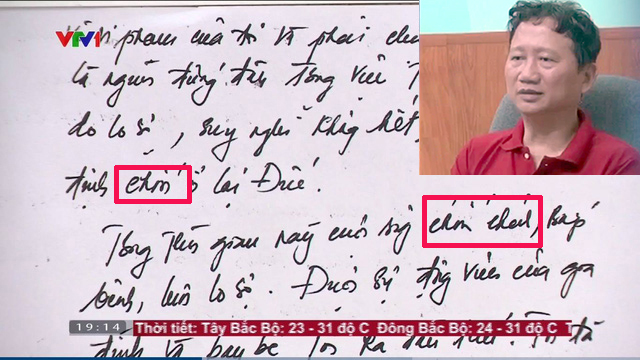 VTV1
phạm của tôi và phải
là người đứng đầu
do lo sợ, suy nghĩ không hết,
định chốn ở lại Đức.
Trong thời gian này cuộc sống chốn chánh, bấp
bênh, luôn lo sợ. Được sự động viên của gia
đình và bạn bè tôi ra đầu thú. Tôi đã
19:14 Thời tiết: Tây Bắc Bộ: 23 - 31 độ C Đông Bắc Bộ: 24 - 31 độ C T